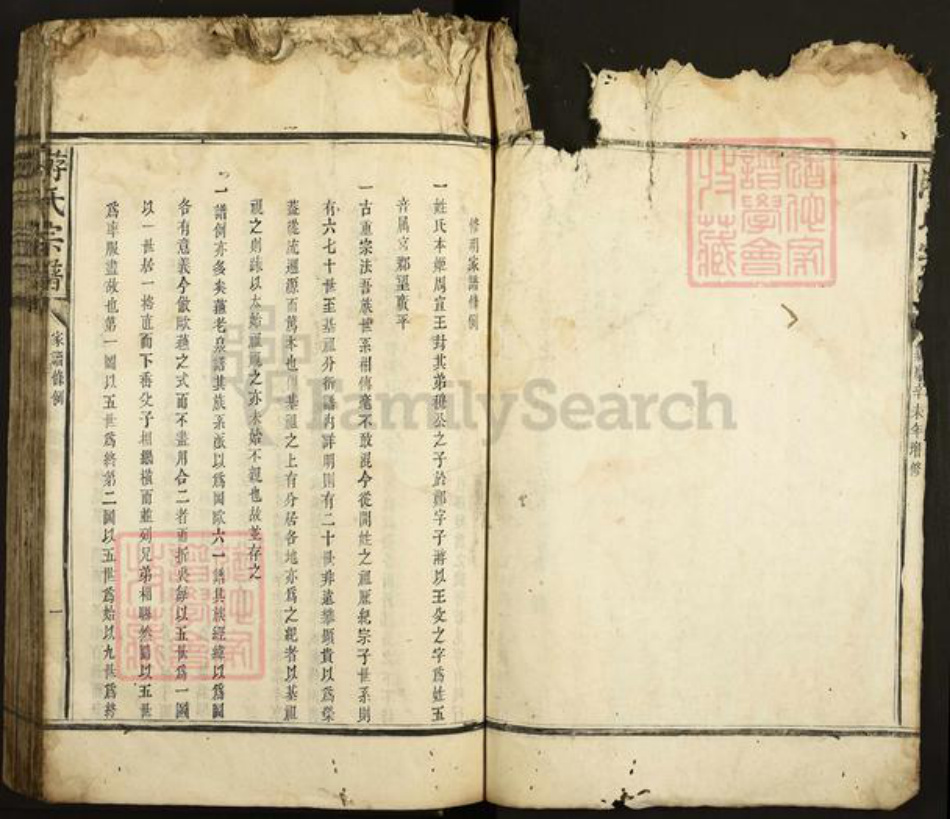 修明家譜條例
一姓氏本姬周宣王封其弟 公之子於鄭字子游以王父之字為姓五
音属宮郡望廣平
一古重宗法吾族世系相傳毫不敢混今從開姓之祖 紀宗子世系則
有六七十世至基祖分衍譜內詳明則有二十世非遠攀顯貴以為榮
蓋從流遡源而篤本也 基祖之上有分居各地亦為之親者以基祖
視之則疎以太始祖視之亦未始不親也故並存之
一譜例亦多矣蘇老泉譜其族系派以為圖歐六一譜其族經緯以為圖
各有意義今倣歐蘇之式而不盡用合二者而折衷每以五世為一圖
以一世居一格直而下番父子相繼橫而並列兄弟相聯然圖以五世
為率服盡故也第一圖以五世為終第二圖以五世為始以九世為終
游氏宗譜
家譜條例
一
辛未年增修
FamilySearch